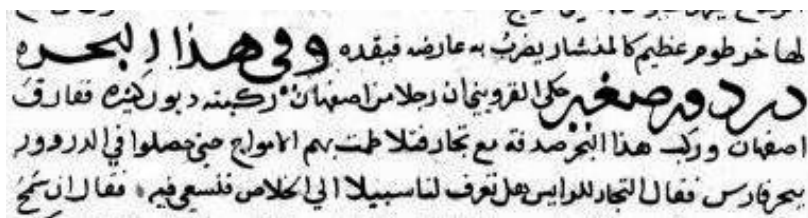 لها خرطوم عظيم كالمنشار يضرب به عارضه فيقده وفي هذا البحر
دردور صغير حكى القزويني ان رجلا من اصفهان ركبته ديون كثيرة ففارق
اصفهان وركب هذا البحر صدفة مع تجار فتلاطمت بهم الامواج حتى حصلوا في الدردور
ببحر فارس فقال التجار للرايس هل تعرف لنا سبيلا الى الخلاص فنسعى فيه فقال ان سمح